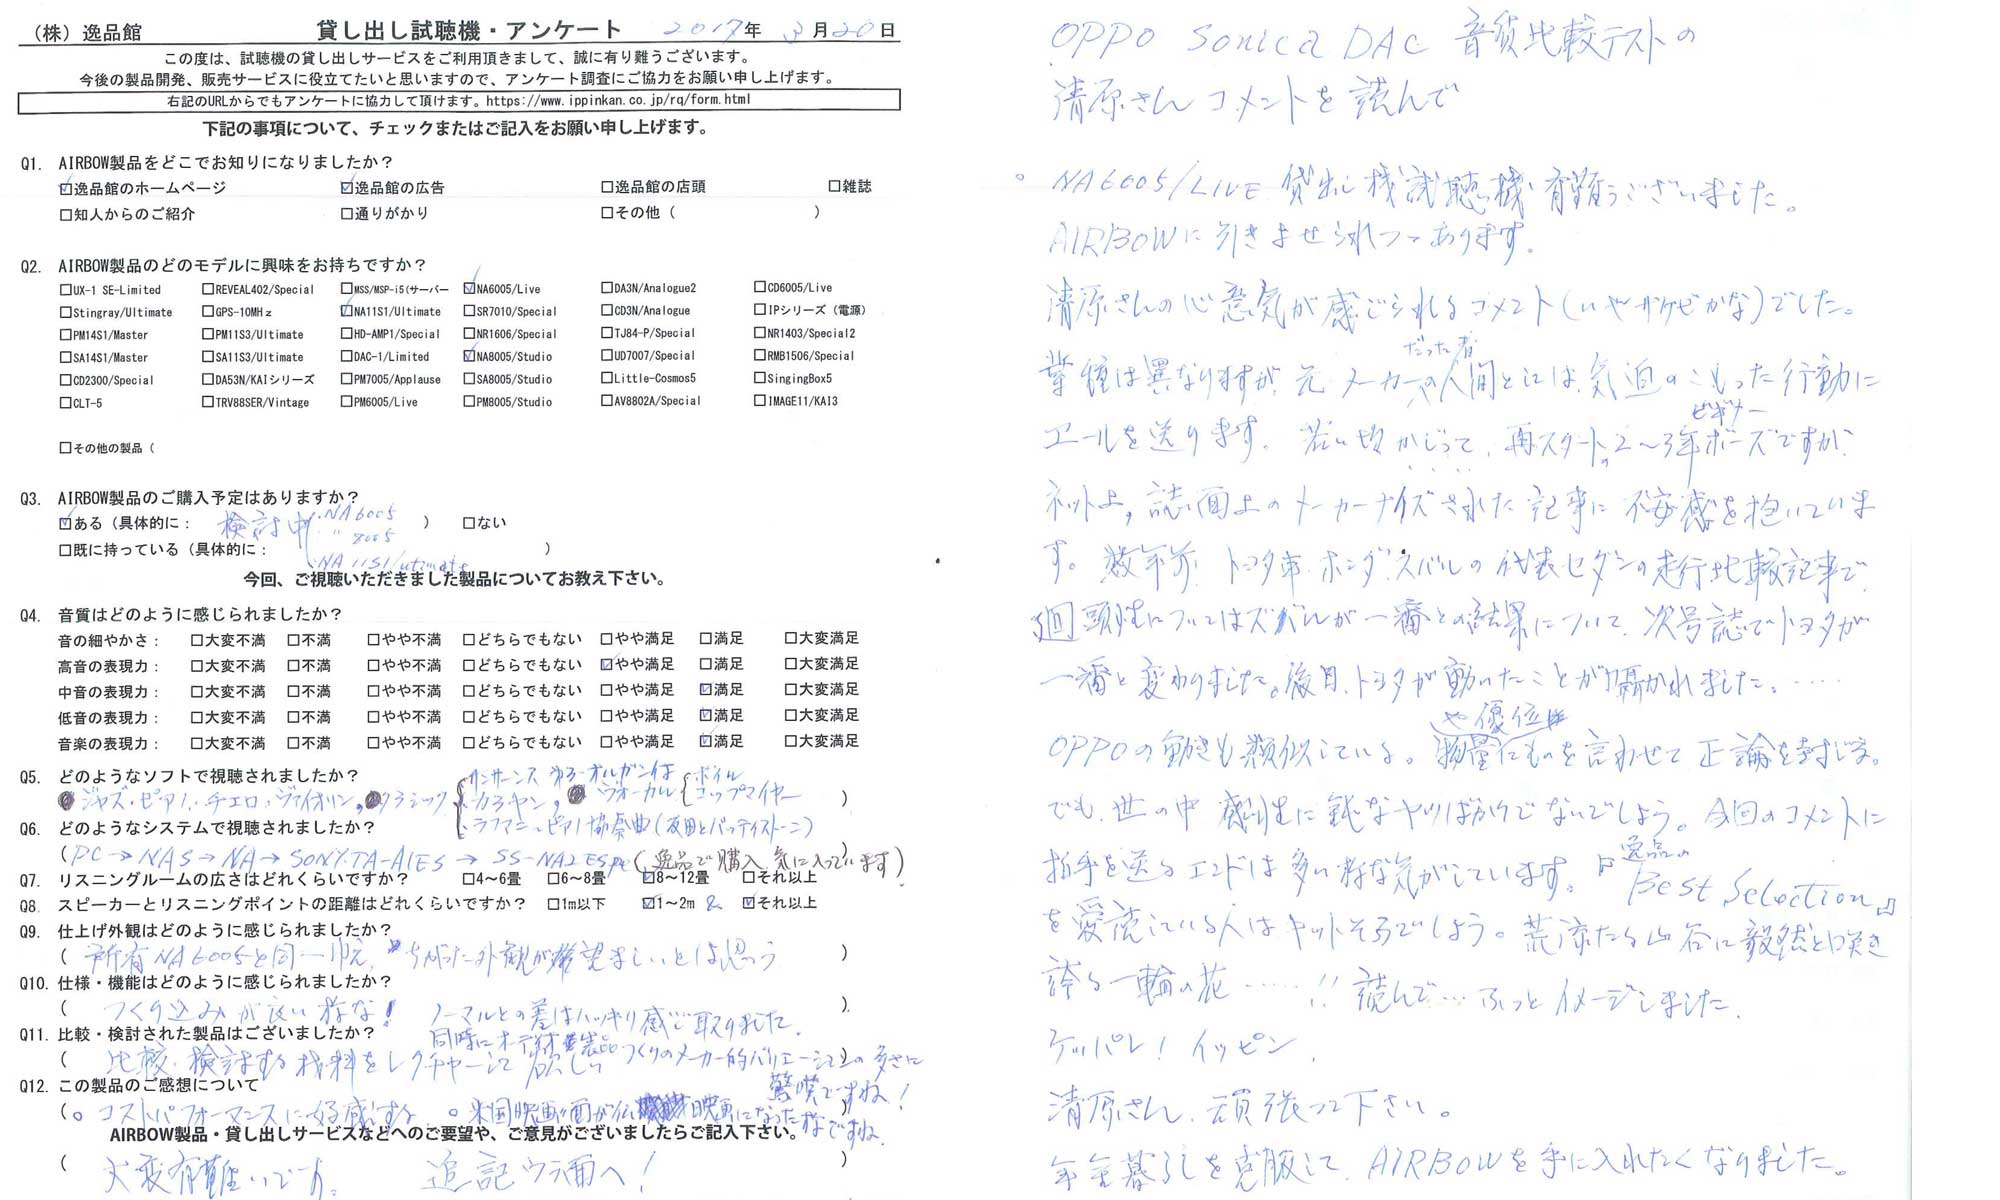 (株) 逸品館 貸し出し試聴機・アンケート 2017年 3月20日
この度は、試聴機の貸し出しサービスをご利用頂きまして、誠に有り難うございます。
今後の製品開発、販売サービスに役立てたいと思いますので、アンケート調査にご協力をお願い申し上げます。
右記のURLからでもアンケートに協力して頂けます。https://www.ippinkan.co.jp/rq/form.html
下記の事項について、チェックまたはご記入をお願い申し上げます。
Q1. AIRBOW製品をどこでお知りになりましたか？
☑逸品館のホームページ ☑逸品館の広告 □逸品館の店頭 □雑誌
□知人からのご紹介 □通りがかり □その他 ( )
Q2. AIRBOW製品のどのモデルに興味をお持ちですか？
□UX-1 SE-Limited □REVEAL402/Special □MSS/MSP-i5(サーバー ☑NA6005/Live □DA3N/Analogue2 □CD6005/Live
□Stingray/Ultimate □GPS-10MHz ☑NA11S1/Ultimate □SR7010/Special □CD3N/Analogue □IPシリーズ (電源)
□PM14S1/Master □PM11S3/Ultimate □HD-AMP1/Special □NR1606/Special □TJ84-P/Special □NR1403/Special2
□SA14S1/Master □SA11S3/Ultimate □DAC-1/Limited ☑NA8005/Studio □UD7007/Special □RMB1506/Special
□CD2300/Special □DA53N/KAIシリーズ □PM7005/Applause □SA8005/Studio □Little-Cosmos5 □SingingBox5
□CLT-5 □TRV88SER/Vintage □PM6005/Live □PM8005/Studio □AV8802A/Special □IMAGE11/KAI3
□その他の製品 (
Q3. AIRBOW製品のご購入予定はありますか？
☑ある (具体的に： 検討中 ・NA6005 ) □ない
〃 8005
□既に持っている (具体的に： )
NA11S1/ultimate
今回、ご視聴いただきました製品についてお教え下さい。
Q4. 音質はどのように感じられましたか？
音の細やかさ： □大変不満 □不満 □やや不満 □どちらでもない □やや満足 □満足 □大変満足
高音の表現力： □大変不満 □不満 □やや不満 □どちらでもない ☑やや満足 □満足 □大変満足
中音の表現力： □大変不満 □不満 □やや不満 □どちらでもない □やや満足 ☑満足 □大変満足
低音の表現力： □大変不満 □不満 □やや不満 □どちらでもない □やや満足 ☑満足 □大変満足
音楽の表現力： □大変不満 □不満 □やや不満 □どちらでもない □やや満足 ☑満足 □大変満足
Q5. どのようなソフトで視聴されましたか？
サンサーンス オルガン付
ジャズ・ピアノ、チェロ、ヴァイオリン、クラシック カラヤン ヴォーカル
ラフマニ ピアノ協奏曲(反田とバッティストーニ)
Q6. どのようなシステムで視聴されましたか？
(PC→NAS→NA→SONY.TA-A1ES→SS-NA2ESpe(逸品で購入 気に入っています)
Q7. リスニングルームの広さはどれくらいですか？ □4～6畳 □6～8畳 ☑8～12畳 □それ以上
Q8. スピーカーとリスニングポイントの距離はどれくらいですか？ □1m以下 ☑1～2m & ☑それ以上
Q9. 仕上げ外観はどのように感じられましたか？
( 所有NA6005と同一ゆえ、ちがった外観が希望ましいとは思う )
Q10. 仕様・機能はどのように感じられましたか？
( つくり込みが良い様な! ノーマルとの差はハッキリ感じ取りました. )
Q11. 比較・検討された製品はございましたか？
同時にオーディオ製品つくりのメーカー的バリエーション上の多さに
( 比較・検討する材料をレクチャーして欲しい )
驚嘆ですね!
Q12. この製品のご感想について
(。コストパフォーマンスに好感する 。米国映画 映画になった様ですね. )
AIRBOW製品・貸し出しサービスなどへのご要望や、ご意見がございましたらご記入下さい。
( 大変有難いです。 追記ウラ面へ! )
OPPO Sonica DAC 音質比較テストの
清原さんコメントを読んで
。NA6005/LIVE 貸出し機試聴機 有難うございました。
AIRBOWに引きよせられつつあります。
清原さんの心意気が感じられるコメント(いやサケビかな)でした。
業種は異なりますが、元メーカーの人間だった者としては、気迫のこもった行動に
エールを送ります。若い頃かじって、再スタートの2～3年ビギナーですが
ネット上、誌面上のメーカーナイズされた記事に不安感を抱いていま
す。数年前、トヨタ車・ホンダ・スバルの代表セダンの走行比較記事で
回頭性についてはスバルが一番との結果について、次号誌でトヨタが
一番と変わりました。後日、トヨタが動いたことが囁かれました。……
OPPOの動きも類似している。物量や優位性にものを言わせて正論を封じる。
でも、世の中 感性に鈍なヤツばかりでないでしょう。今回のコメントに
拍手を送るエンドは多い様な気がしています。『逸品のBest Selection』
を愛読している人はキットそうでしょう。荒涼たる山谷に毅然と咲き
誇る一輪の花……!! 読んで…ふっとイメージしました.
ケッパレ! イッピン.
清原さん、頑張って下さい。
年金暮らしを克服して、AIRBOWを手に入れたくなりました。